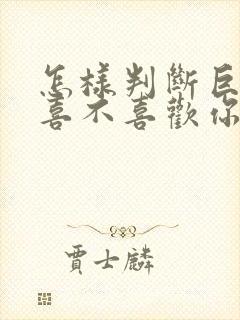 怎樣判斷巨
喜不喜歡你
賈士麟